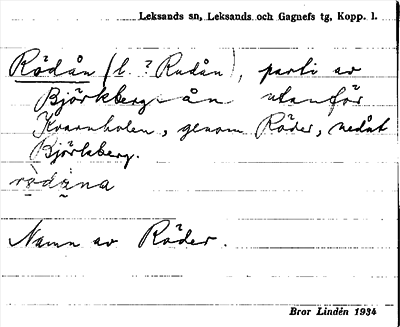 Leksands sn, Leksands och Gagnefs tg, Kopp. l.
Rödån (l. ? Rudån), parti av
Björkberg-ån utanför
Kvarnholen, genom Röder, nedåt
Björkberg.
rödäna
Namn av Röder.
Bror Lindén 1934